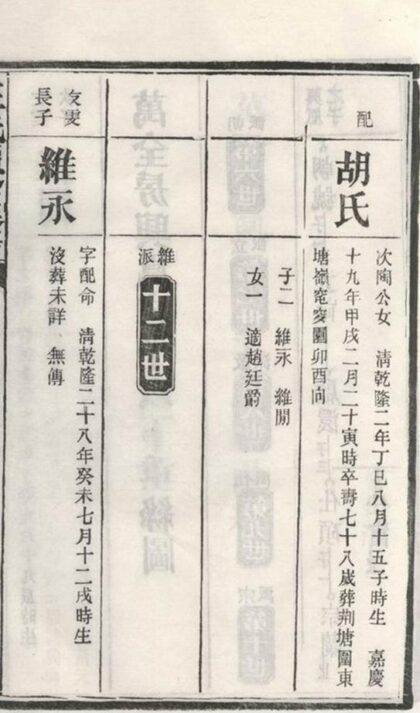 配
胡氏
次陶公女 清乾隆二年丁巳八月十五子時生 嘉慶
十九年甲戌二月二十寅時卒壽七十八歲葬荆塘圍東
塘嶺窀穸園卯酉向
子二 維永 維閒
女一 適趙廷爵
維派
十二世
友雯長子
維永
字配命 清乾隆二十八年癸未七月十二戌時生
沒葬未詳 無傳